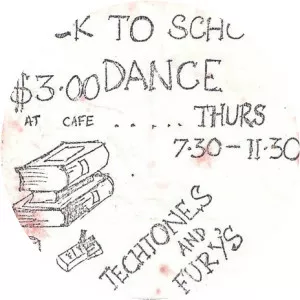 -K TO SCHO
$3.00 DANCE
AT CAFE ..... THURS
7.30-11.30
TECHTONES
AND
FURY'S